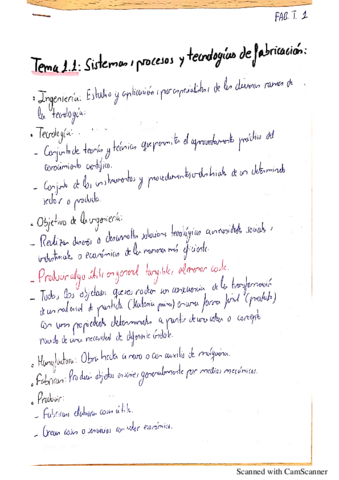 FAB. T. 1
Tema 1.1: Sistemas, procesos y tecnologías de fabricación:
• Ingeniería: Estudio y aplicación, por especialistas, de las diversas ramas de
la tecnología.
• Tecnología:
- Conjunto de teorías y técnicas que permiten el aprovechamiento práctico del
conocimiento científico.
- Conjunto de los instrumentos y procedimientos industriales de un determinado
sector o producto.
• Objetivo de la ingeniería:
- Realizar diseños o desarrollar soluciones tecnológicas a necesidades sociales,
industriales o económicas de la manera más eficiente.
- Producir algo útil en general tangible, al menor coste.
- Todos los objetos que es rodean son consecuencia de la transformación
de un material de partida (Materia prima) en una forma final (producto)
con unas propiedades determinadas a partir de una idea o concepto
nacido de una necesidad de diferente índole.
• Manufactura: Obra hecha a mano o con auxilio de máquina.
• Fabricar: Producir objetos en serie generalmente por medios mecánicos.
• Producir:
- Fabricar, elaborar cosas útiles.
- Crear cosas o servicios con valor económico.
Scanned with CamScanner